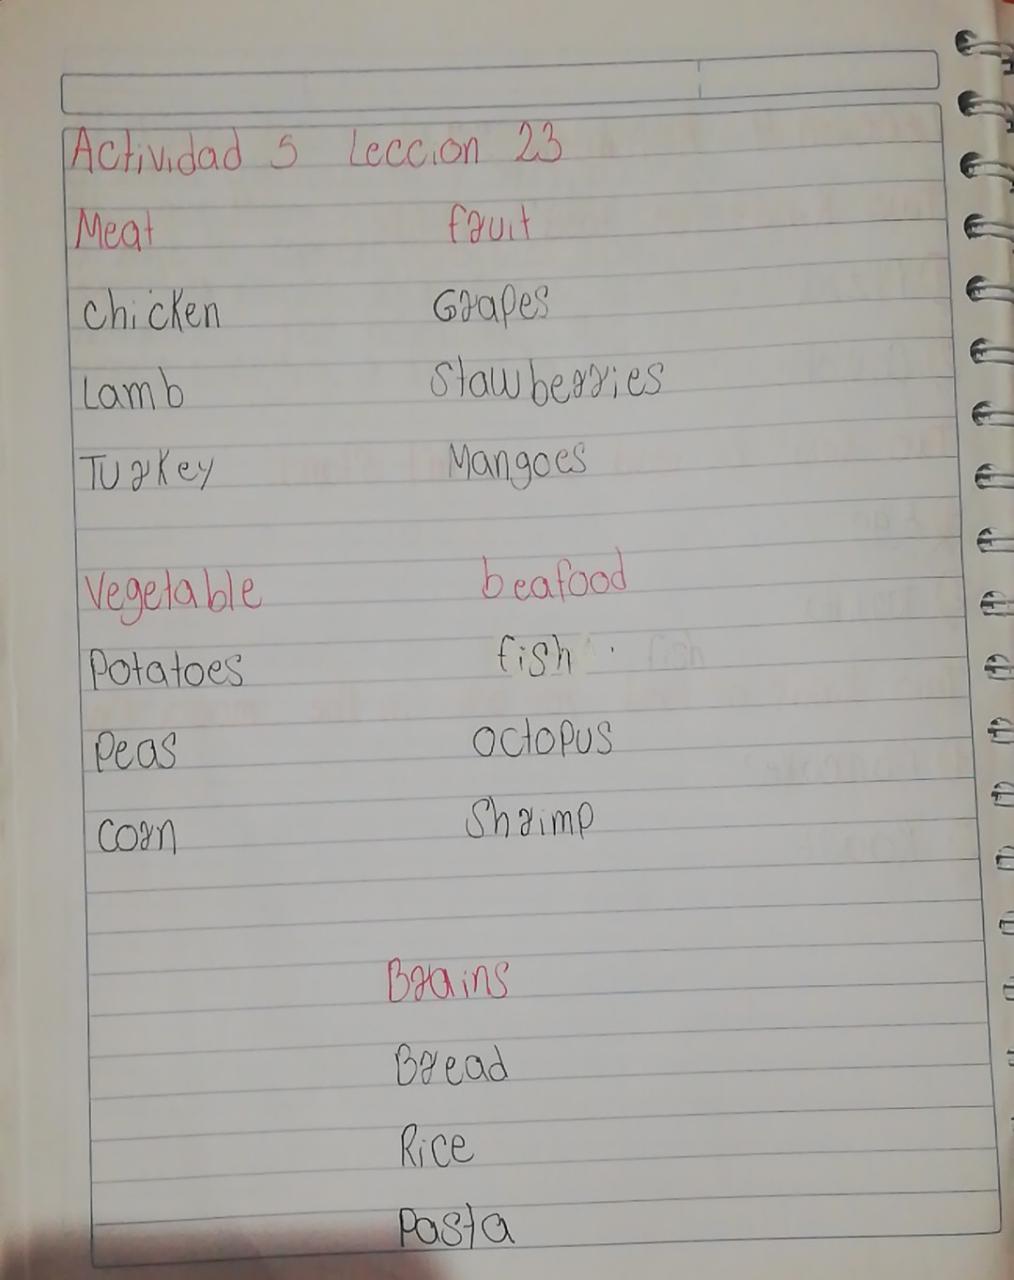 Actividad 5 Leccion 23
Meat fruit
chicken Grapes
Lamb Stawberries
Turkey Mangoes
Vegetable beafood
Potatoes fish
Peas octopus
corn Shrimp
Brains
Bread
Rice
Pasta